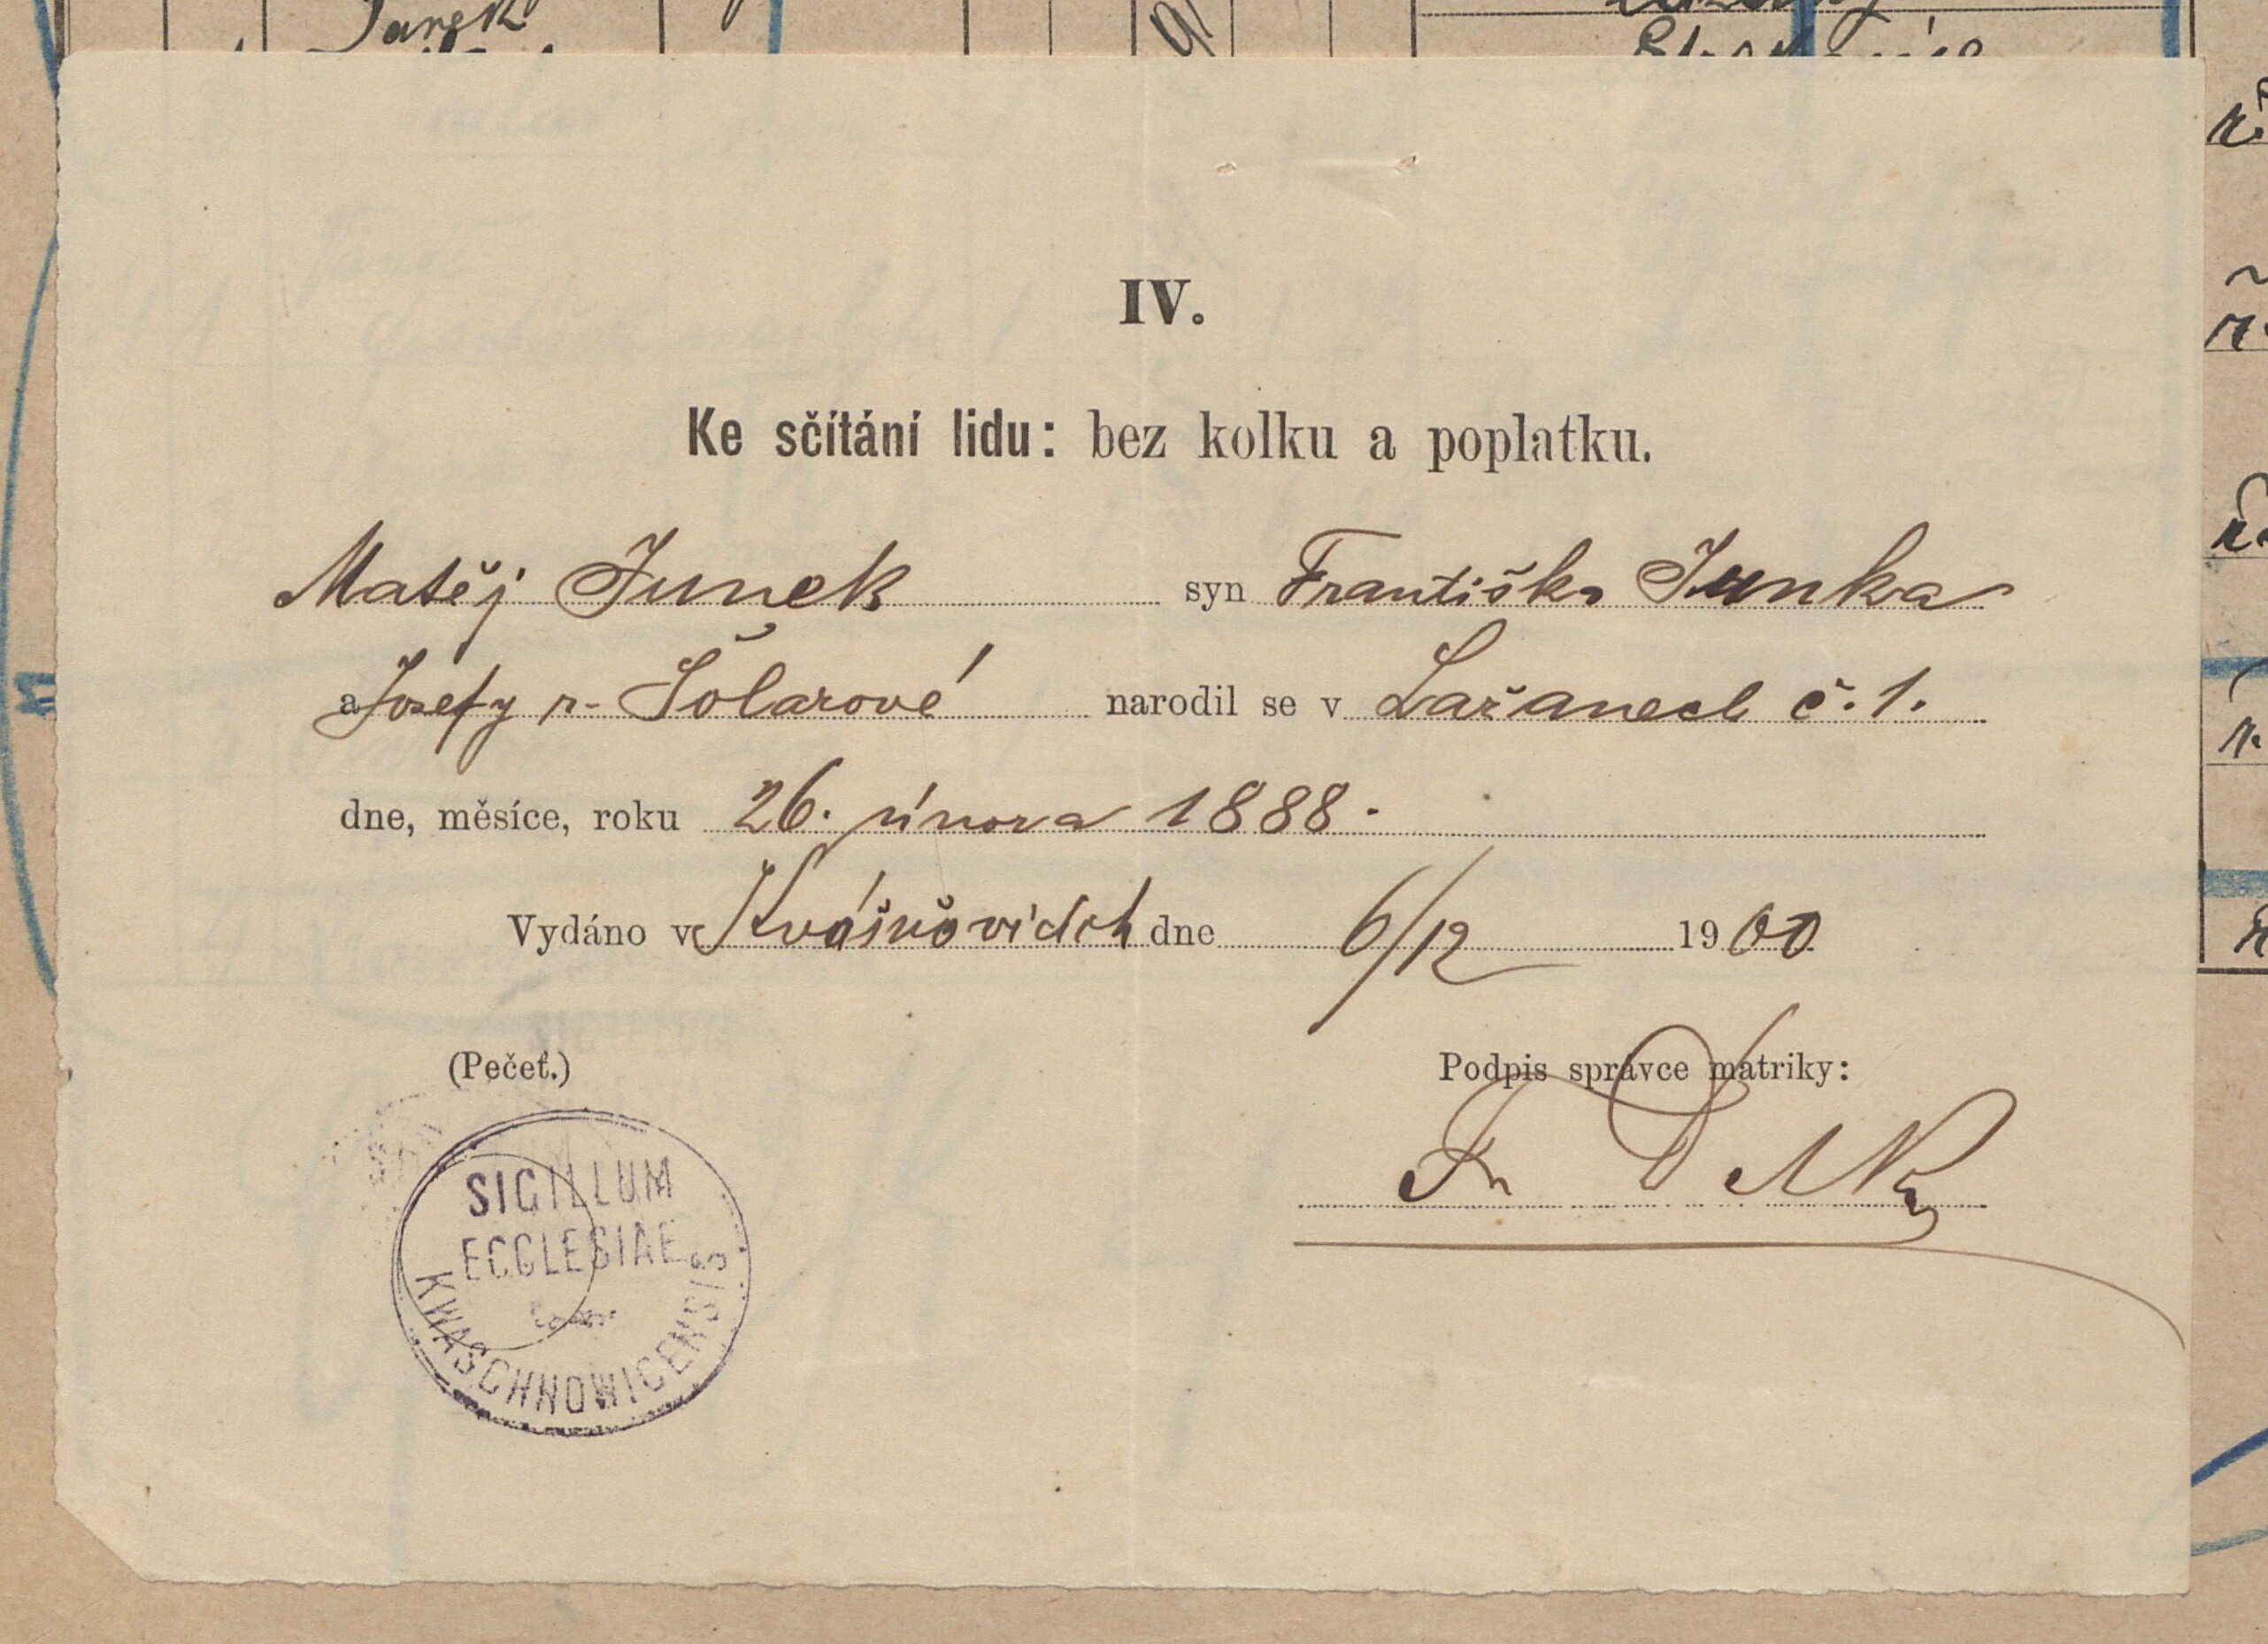 Janek
IV.
Ke sčítání lidu: bez kolku a poplatku.
Matěj Junek syn Františka Junka
a Josefy r. Šolarové narodil se v Lažanech č. 1.
dne, měsíce, roku 26. února 1888.
Vydáno v Kvášňovicích dne 6/12 1900
(Pečeť.) Podpis správce matriky:
Fr
SIGILLUM
ECCLESIAE
KWASCHNOWICENSIS